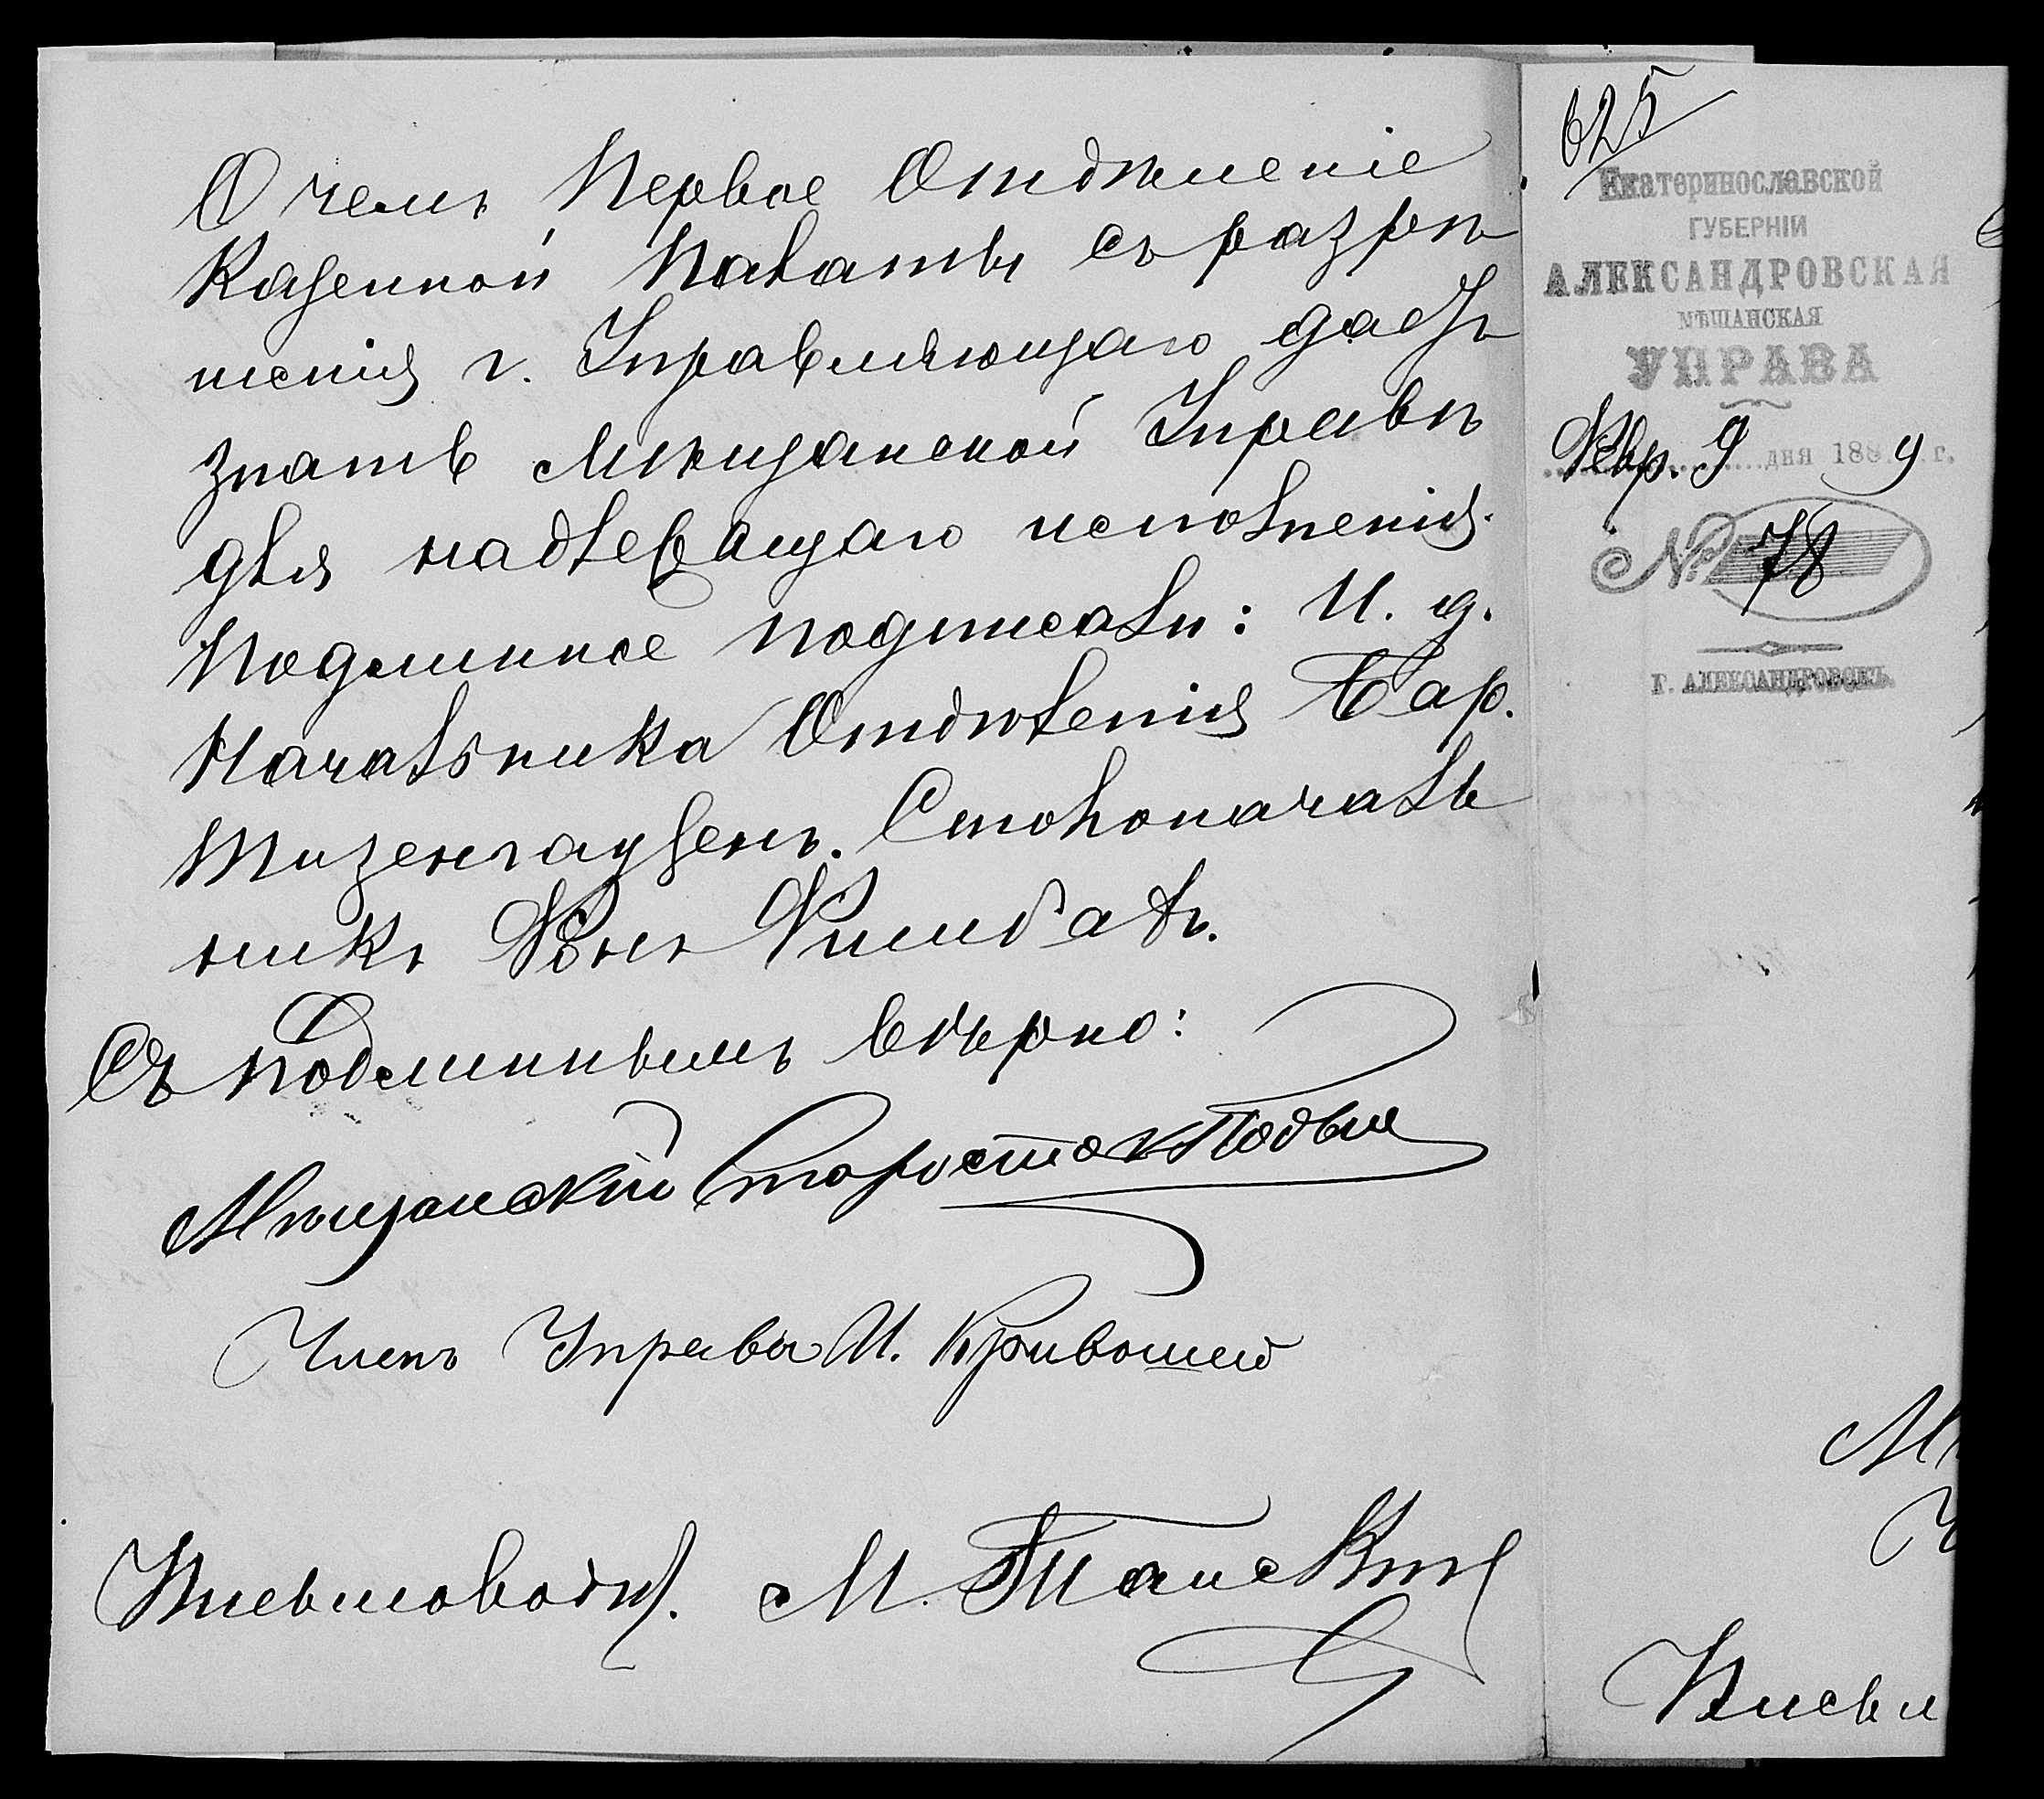 О чемъ Первое Отдѣленіе
Казенной Палаты съ разрѣ
шенія г. Управляющаго даетъ
знать Мѣщанской Управѣ
для надлежащаго исполненія.
Подлинное подписали: И. д.
Начальника Отдѣленія Бар.
Тизенгаузенъ. Столоначаль
никъ Фонъ
Съ подлиннымъ вѣрно:
Мѣщанскій Староста
Членъ Управы И. Кривошей
Письмовод. М.
625
Екатеринославской
ГУБЕРНІИ
АЛЕКСАНДРОВСКАЯ
МѢЩАНСКАЯ
УПРАВА
Февр. 9 дня 1889 г.
№ 78
Г. АЛЕКСАНДРОВСКЪ.
М
Ч
Письм